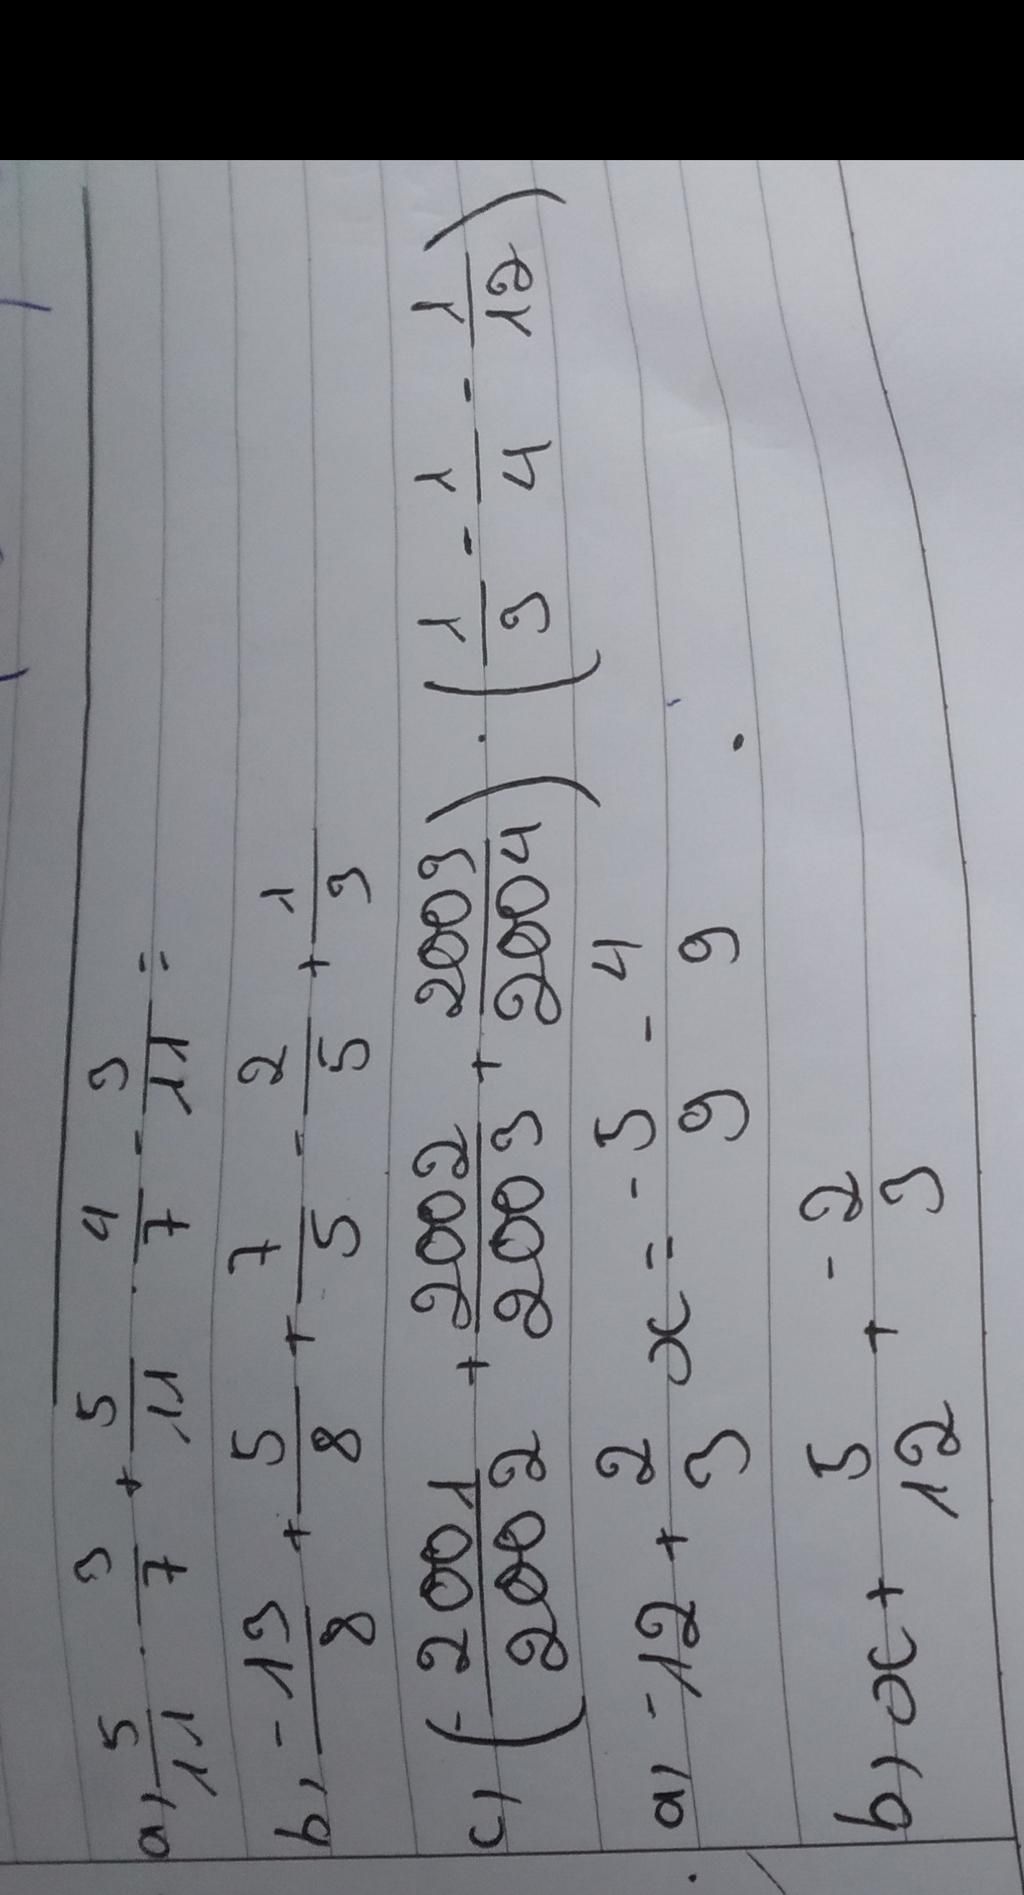 a, 5/11 . 3/7 + 5/11 . 4/7 - 3/11 =
b, -13/8 + 5/8 + 7/5 - 2/5 + 1/3
c) (-2001/2002 + 2002/2003 + 2003/2004) . (1/3 - 1/4 - 1/12)
a, -12 + 2/3 x = -5/9 - 4/9
b, x + 5/12 + -2/3